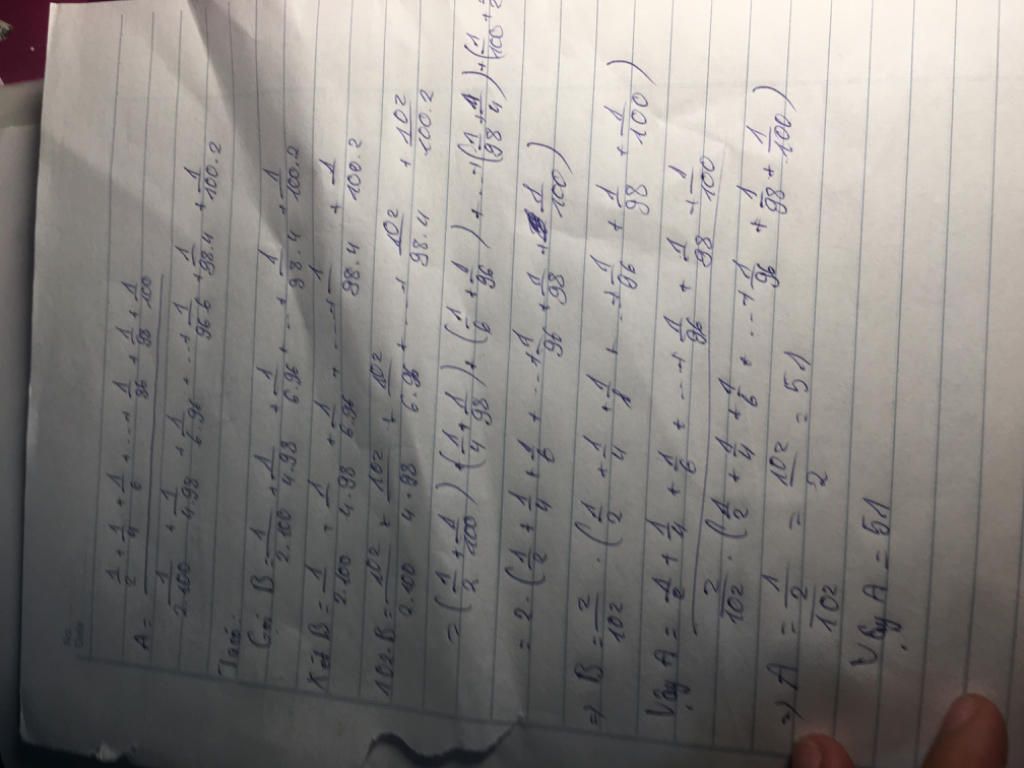 No.
Date
A = (1/2 + 1/4 + 1/6 + ... + 1/96 + 1/98 + 1/100) / (1/2.100 + 1/4.98 + 1/6.96 + ... + 1/96.6 + 1/98.4 + 1/100.2)
Gọi B = 1/2.100 + 1/4.98 + 1/6.96 + ... + 1/98.4 + 1/100.2
Xét B = 1/2.100 + 1/4.98 + 1/6.96 + ... + 1/98.4 + 1/100.2
102.B = 102/2.100 + 102/4.98 + 102/6.96 + ... + 102/98.4 + 102/100.2
= (1/2 + 1/100) + (1/4 + 1/98) + (1/6 + 1/96) + ... + (1/98 + 1/4) + (1/100 +
= 2 . (1/2 + 1/4 + 1/6 + ... + 1/96 + 1/98 + 1/100)
=> B = 2/102 . (1/2 + 1/4 + 1/8 + ... + 1/96 + 1/98 + 1/100)
Vậy A = (1/2 + 1/4 + 1/6 + ... + 1/96 + 1/98 + 1/100) / (2/102 . (1/2 + 1/4 + 1/6 + ... + 1/96 + 1/98 + 1/100))
=> A = 1/(2/102) = 102/2 = 51
Vậy A = 51